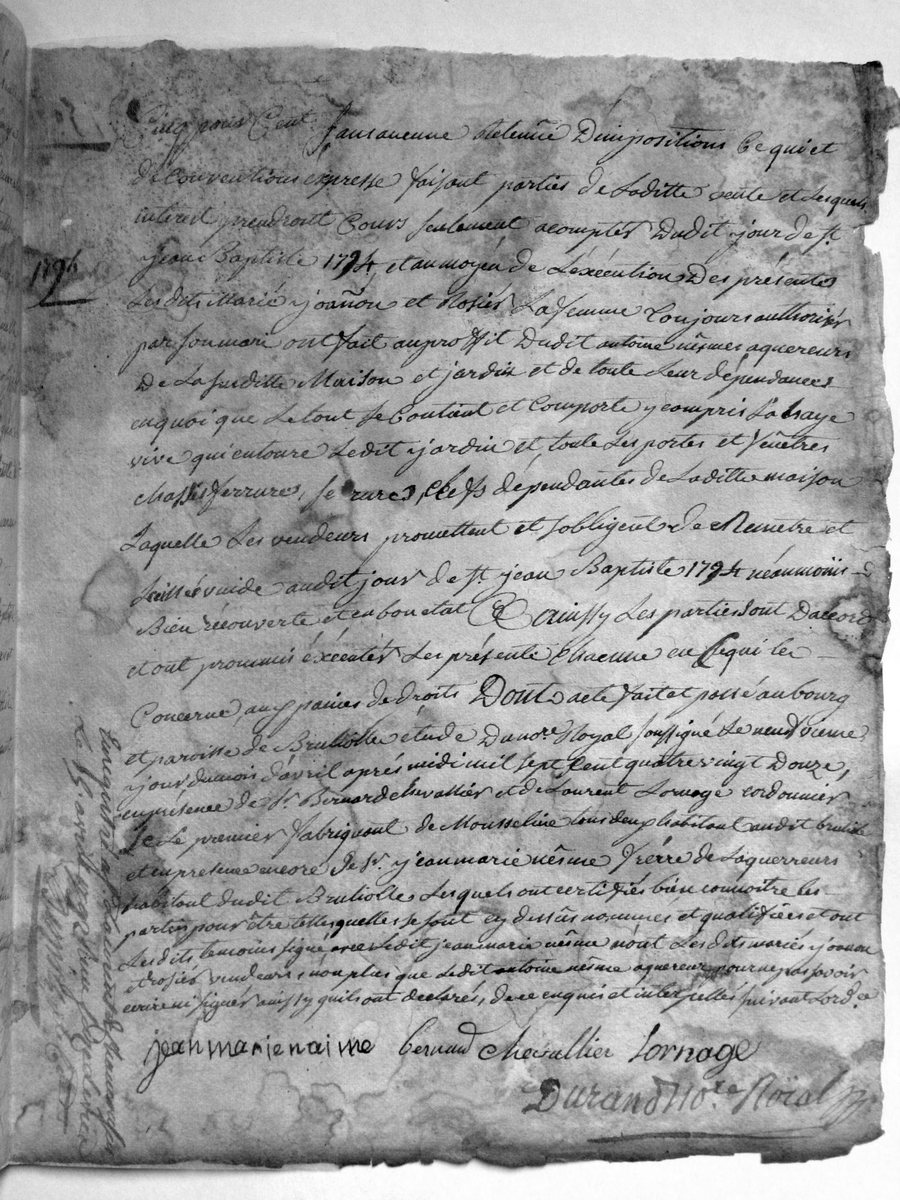 Cinq pour Cent sans aucune Retenüe Dimpositions Ce qui et
de Conventions expresse faisant parties de Laditte vente et Lesquels
interest prendront Cours seulement acompter Dudit jour de st.
jean Baptiste 1794, et au moyen de Lexécution Des présente
Les dits Marié joanon et Rosier La femme toujours authorisés
par son mari ont fait au proffit Dudit antoine nêsme aquereurs
De La suditte Maison et jardin et de toute Leur dépendances
en quoi que Le tout se Contient et Comporte y compris La haye
vive qui entoure Ledit jardin et toute Les portes et fenêtres
Clefs dépendantes de Laditte maison
Laquelle Les vendeurs promettent et sobligent de Remetre et
vuide audit jour de st. jean Baptiste 1794 néanmoins
Bien récouverte et en bon etat Et ainssy Les parties sont Daccord
et ont prommis éxécuter Les présente Chacune en ce qui les
Concerne aux paines de droits Dont acte fait et passé au bourg
et paroisse de Brulliolle étude Du nore. Royal soussigné Le neufvieme
jour du mois d'avril aprés midi mil sept Cent quatre vingt Douze,
en présence de sr. Bernard chevallier et de Laurent Lornage cordonnier
Le premier fabriquant de Mousseline tous deux habitant audit
et en presence encore de sr. jean marie nêsme frérre de Laquerreurs
habitant dudit Brulliolles Lesquels ont certifiés bien connoître les
parties pour être telles quelles se sont cy dessus nommées et qualifiées et ont
Les dits temoins signé avec Ledit jean marie nêsme nont Les dits mariés joanon
et rosier vendeurs non plus que Ledit antoine nêsme aquereur pour ne pas savoir
ecrire ni signer ainssy quils ont déclarés, de ce enquis et interpellés suivant Lord.ce
jean marie naime bernard chevallier Lornage
Durand nore Roïal
1794